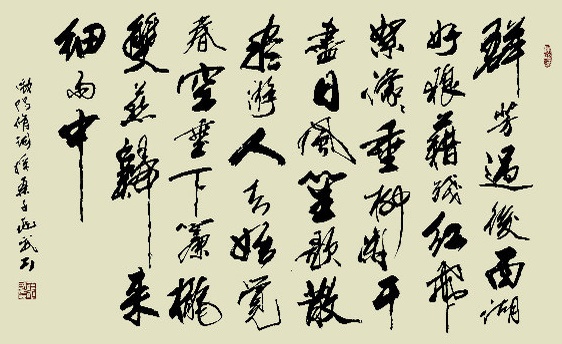 群芳過後西湖
好狼藉殘紅飛
絮濛〻垂柳闌干
盡日風笙歌散
盡游人去始覺
春空垂下簾櫳
雙燕歸來
細雨中
歐陽脩詞採桑子